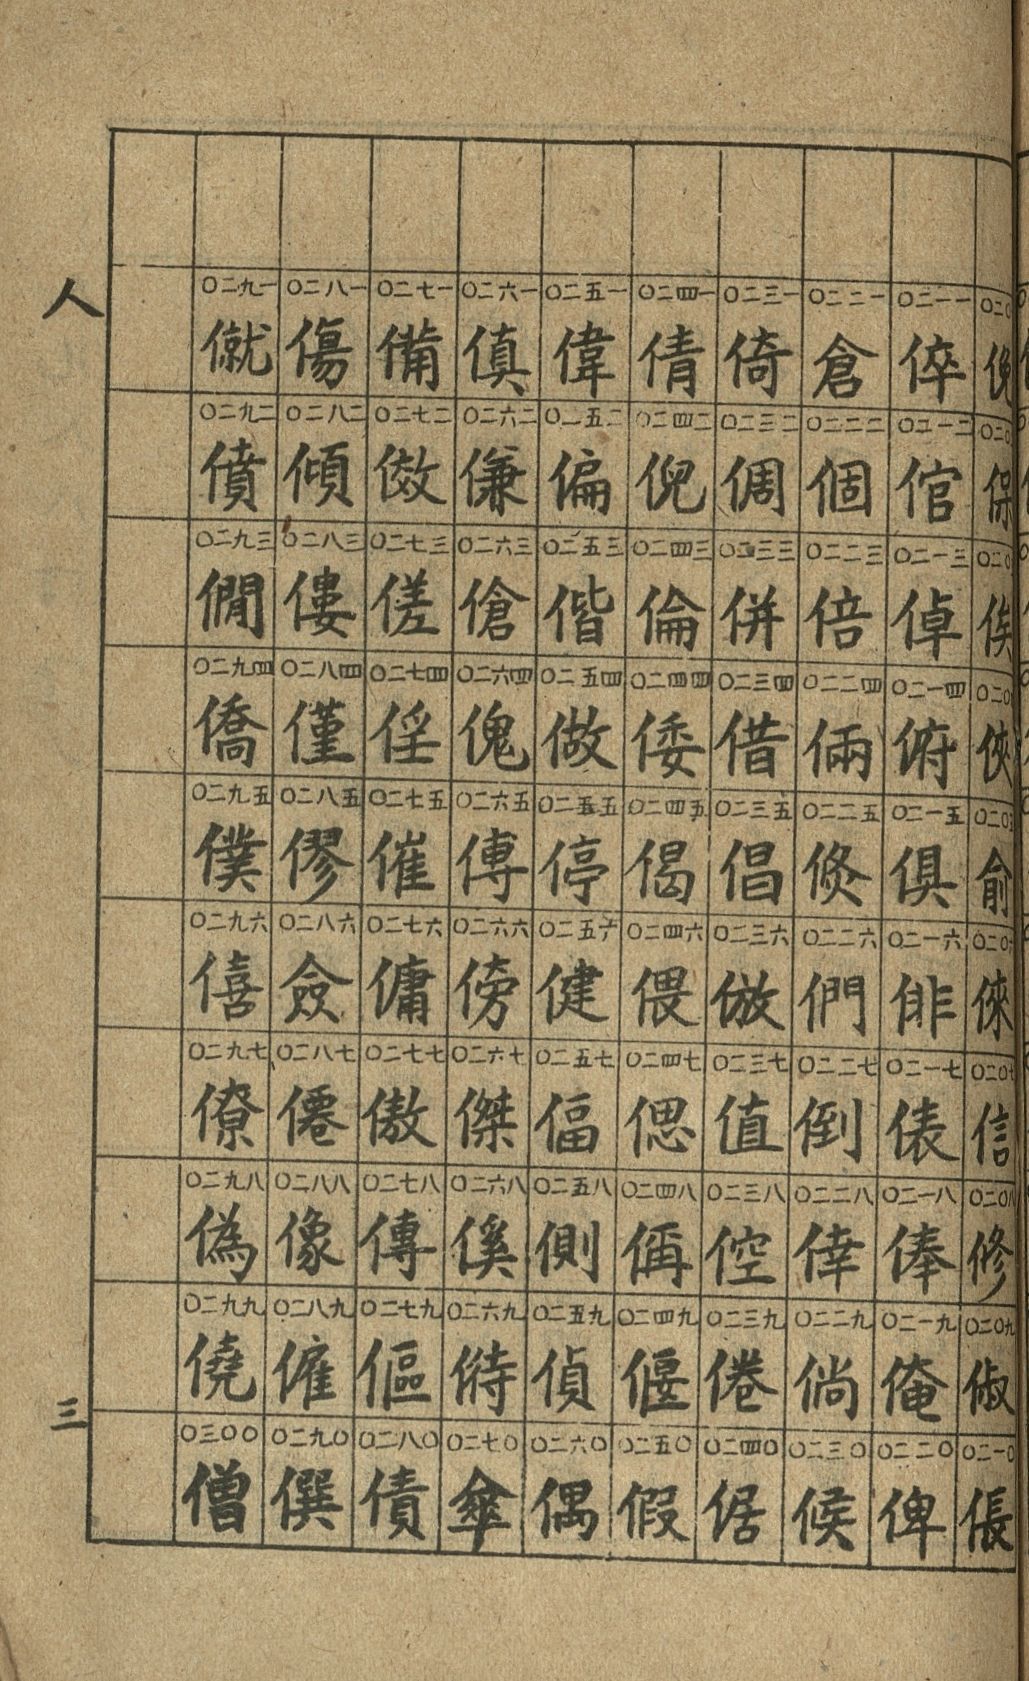 〇二〇 俛
〇二〇 保
〇二〇 俟
〇二〇 俠
〇二〇五 俞
〇二〇 俫
〇二〇七 信
〇二〇八 修
〇二〇九 俶
〇二一〇 倀
〇二一一 倅
〇二一二 倌
〇二一三 倬
〇二一四 俯
〇二一五 俱
〇二一六 俳
〇二一七 俵
〇二一八 俸
〇二一九 俺
〇二二〇 俾
〇二二一 倉
〇二二二 個
〇二二三 倍
〇二二四 倆
〇二二五 倐
〇二二六 們
〇二二七 倒
〇二二八 倖
〇二二九 倘
〇二三〇 候
〇二三一 倚
〇二三二 倜
〇二三三 併
〇二三四 借
〇二三五 倡
〇二三六 倣
〇二三七 値
〇二三八 倥
〇二三九 倦
〇二四〇 倨
〇二四一 倩
〇二四二 倪
〇二四三 倫
〇二四四 倭
〇二四五 偈
〇二四六 偎
〇二四七 偲
〇二四八 偁
〇二四九 偃
〇二五〇 假
〇二五一 偉
〇二五二 偏
〇二五三 偕
〇二五四 做
〇二五五 停
〇二五六 健
〇二五七 偪
〇二五八 側
〇二五九 偵
〇二六〇 偶
〇二六一 傎
〇二六二 傔
〇二六三 傖
〇二六四 傀
〇二六五 傅
〇二六六 傍
〇二六七 傑
〇二六八 傒
〇二六九 偫
〇二七〇 傘
〇二七一 備
〇二七二 傚
〇二七三 傞
〇二七四
〇二七五 催
〇二七六 傭
〇二七七 傲
〇二七八 傳
〇二七九 傴
〇二八〇 債
〇二八一 傷
〇二八二 傾
〇二八三 僂
〇二八四 僅
〇二八五 僇
〇二八六 僉
〇二八七 僊
〇二八八 像
〇二八九 僱
〇二九〇 僎
〇二九一 僦
〇二九二 僨
〇二九三 僴
〇二九四 僑
〇二九五 僕
〇二九六 僖
〇二九七 僚
〇二九八 偽
〇二九九 僥
〇三〇〇 僧
人
三